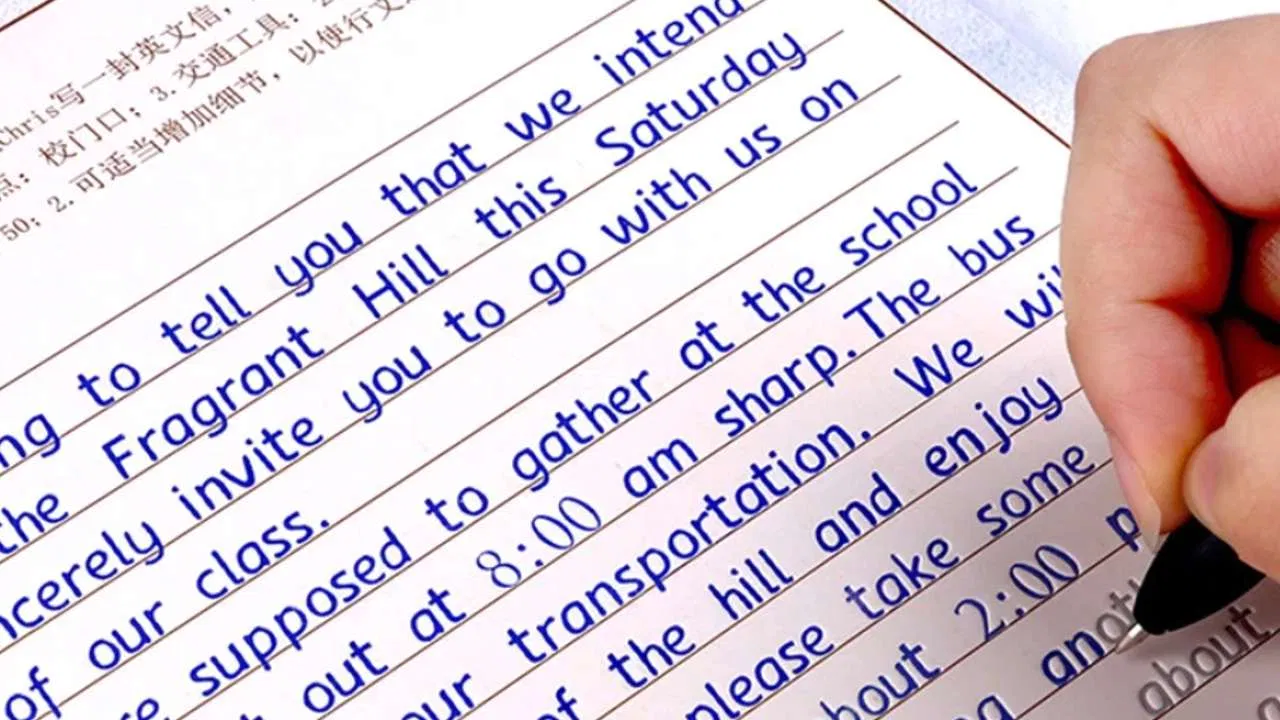 Chris写一封英文信，
点：校门口；3.交通工具：2
50；2.可适当增加细节，以使行文
ng to tell you that we intend
the Fragrant Hill this Saturday
ncerely invite you to go with us on
of our class.
supposed to gather at the school
out at 8:00 am sharp. The bus
our transportation. We wil
of the hill and enjoy
please take some
bout 2:00 p
anoth
about